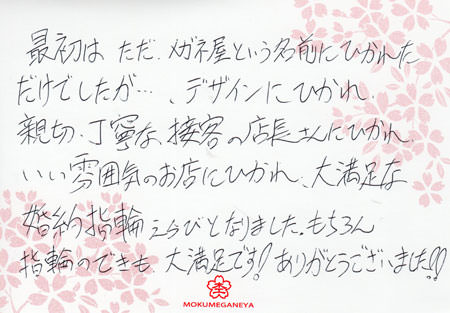 最初は ただ、メガネ屋という名前にひかれた
だけでしたが…、デザインにひかれ、
親切、丁寧な、接客の店長さんにひかれ、
いい雰囲気のお店にひかれ、大満足な
婚約指輪えらびとなりました。もちろん
指輪のできも、大満足です!ありがとうございました!!
MOKUMEGANEYA